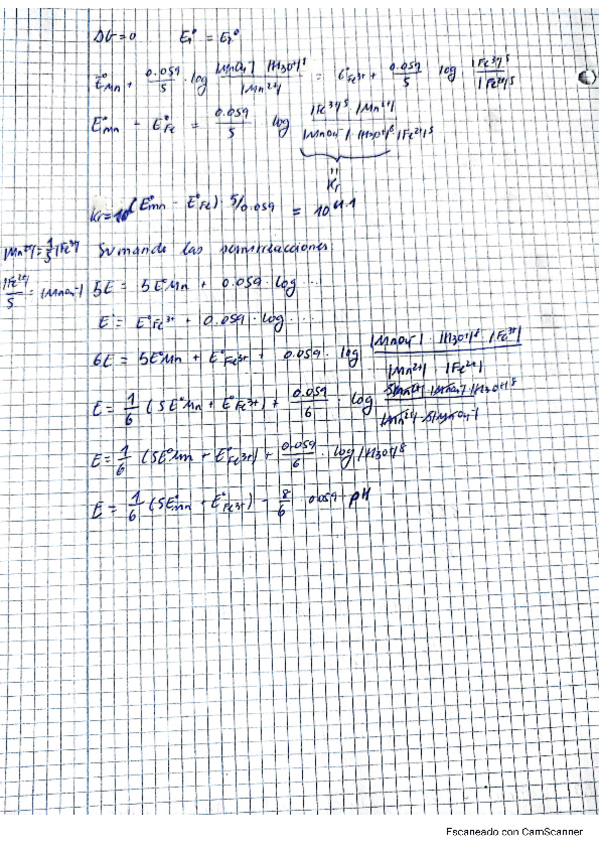 ΔG=0 E₁° = E₂°
E°Mn + 0.059/5 · log |MnO4⁻| |H3O+|⁸ / |Mn²⁺| = E°Fe³⁺ + 0.059/5 log |Fe³⁺|⁵ / |Fe²⁺|⁵
E°mn - E°Fe = 0.059/5 log |Fe³⁺|⁵ · |Mn²⁺| / |MnO4⁻| · |H3O+|⁸ · |Fe²⁺|⁵
"
Kr
Kr = 10^(E°mn - E°Fe) · 5/0.059 = 10
|Mn²⁺| = 1/5 |Fe³⁺| Sumando las semirreacciones
|Fe²⁺|/5 = |MnO4⁻| 5E = 5E°Mn + 0.059 · log ...
E = E°Fe³⁺ + 0.059 · log ...
6E = 5E°Mn + E°Fe³⁺ + 0.059 · log |MnO4⁻| · |H3O+|⁸ · |Fe³⁺| / |Mn²⁺| · |Fe²⁺|
E = 1/6 (5E°Mn + E°Fe³⁺) + 0.059/6 · log 5|Mn²⁺| · |MnO4⁻| |H3O+|⁸ / |Mn²⁺| · 5|MnO4⁻|
E = 1/6 (5E°Mn + E°Fe³⁺) + 0.059/6 · log |H3O+|⁸
E = 1/6 (5E°mn + E°Fe³⁺) - 8/6 · 0.059 · pH
Escaneado con CamScanner